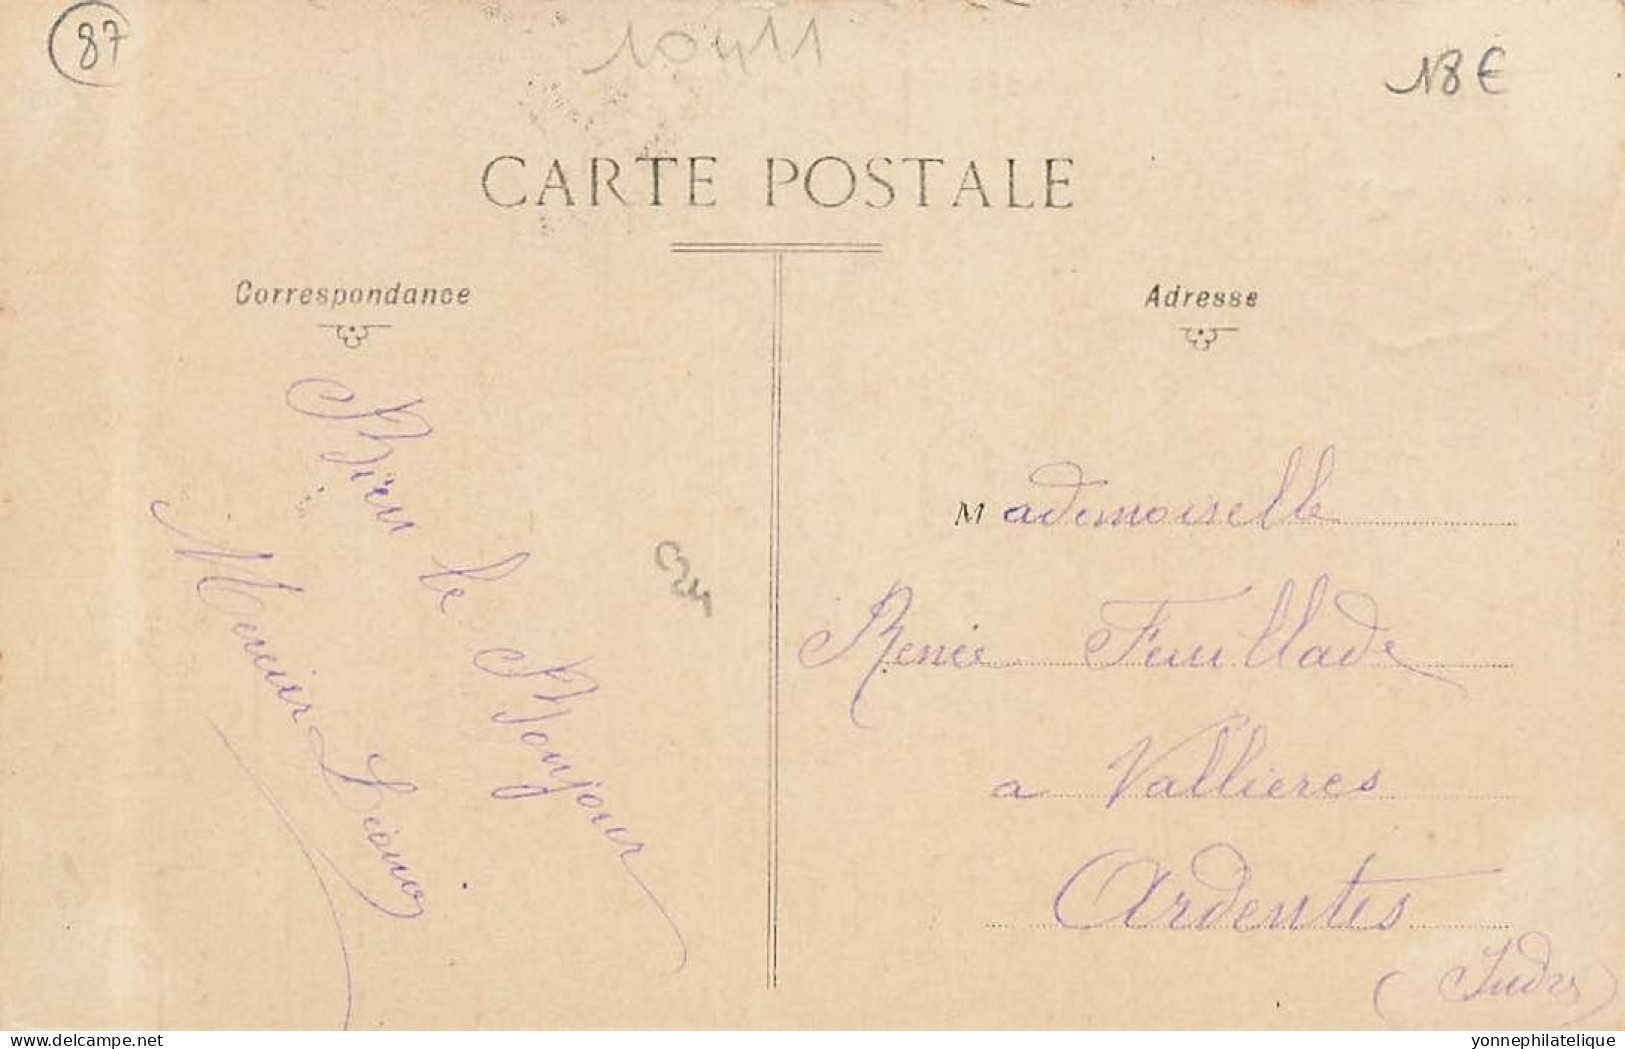 87
10411
18 €
CARTE POSTALE
Correspondance
Adresse
Bien le Bonjour
Mercier
C24
Mademoiselle
Renée Feuillade
a Vallieres
Ardentes
(Indre)
delcampe.net
yonnephilatelique